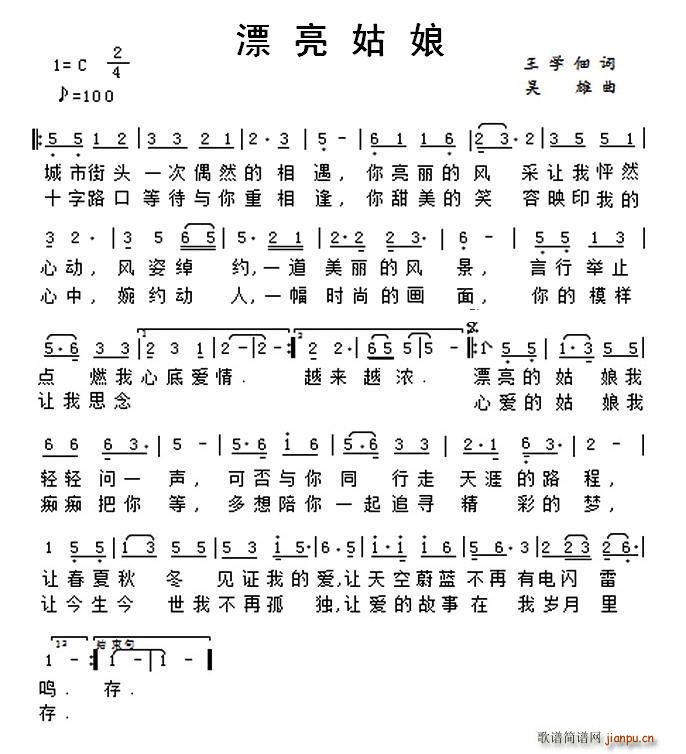 漂亮姑娘
1=C 2/4
王学佃词
♪=100
吴 雄曲
5 5 1 2 | 3 3 3 1 | 2· 3 | 5 - | 6 1 1 6 | 2 3· | 3 5 5 1 |
城市街头 一次偶然的 相 遇, 你亮丽的 风 采让我怦然
十字路口 等待与你重 相 逢, 你甜美的 笑 容映印我的
3 2· | 3 5 6 5 | 5· 2 1 | 2·2 2 3· | 6 - | 5 5 1 3 |
心动, 风姿绰 约,一道 美丽的风 景, 言行举止
心中, 婉约动 人,一幅 时尚的画 面, 你的模样
5·6 3 3 | 2 2 2 1 | 2 - | 2 - :| 2 2· | 6 5 5 | 5 - :| 1 5 5 | 1·3 5 5 |
点 燃我心底爱情. 越来 越浓. 漂亮的 姑 娘我
让我思念 心爱的 姑 娘我
6 6 6 3· | 5 - | 5 6 i 6 | 5·6 3 3 | 2·1 6 | 2 2 5· |
轻轻 问一 声, 可否与你 同 行走 天涯的路程,
痴痴 把你 等, 多想陪你 一起追寻 精 彩的梦,
1 5 5 | 1 3 5 5 | 5 5 3 | 6 5· 6 | i i 6 | 5 6· 5 | 2 2 3 | 2 6· |
让春夏秋 冬 见证我的爱,让天空蔚蓝不再有电闪 雷
让今生今 世我不再孤 独,让爱的故事在 我岁月 里
12 结束句
1 - :| 1 - | 1 - |
鸣. 存.
存.
歌谱简谱网
jianpu.cn